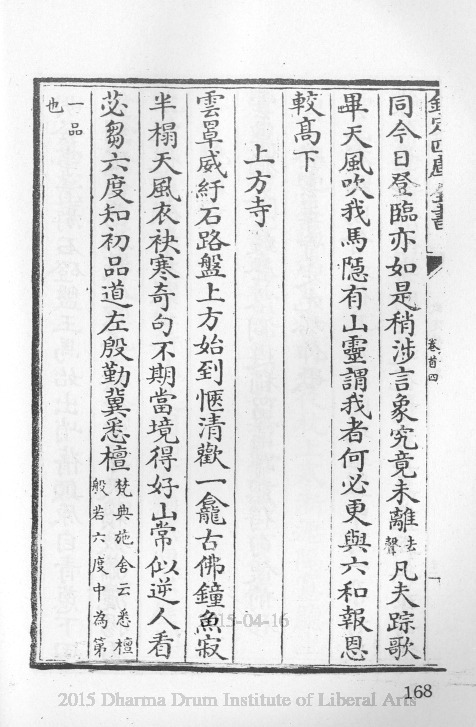 欽定四庫全書
卷首四
同今日登臨亦如是稍涉言象究竟未離去聲凡夫踪歌
畢天風吹我馬隱有山靈謂我者何必更與六和報恩
較高下
上方寺
雲罩威紆石路盤上方始到愜清歡一龕古佛鐘魚寂
半榻天風衣袂寒奇句不期當境得好山常似逆人看
苾芻六度知初品道左殷勤冀悉檀梵典施舍云悉檀般若六度中為第
一品也
2015-04-16
168
2015 Dharma Drum Institute of Liberal Arts